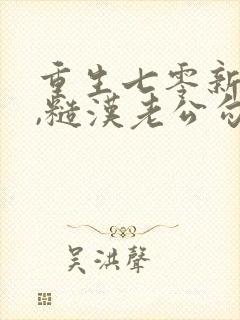 重生七零新
,糙漢老公勾
吴洪聲